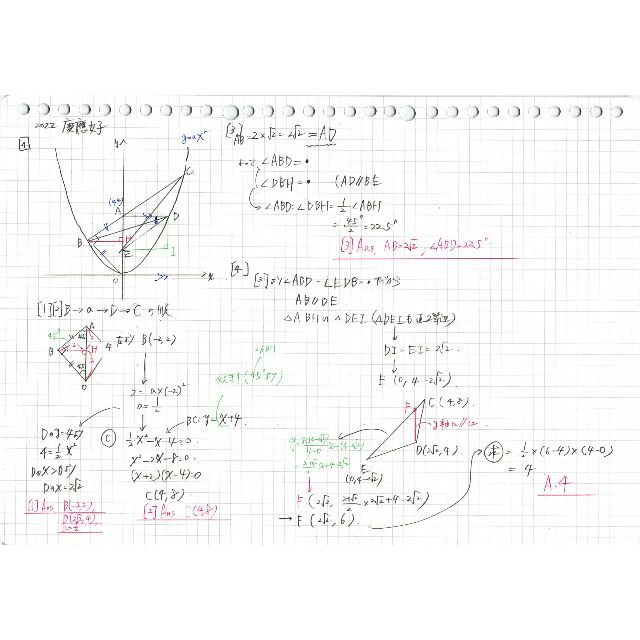 2022 慶應女子
[1]
y
y=ax²
C
A
(0,4)
D
B
H
E
I
O
x
[3]
AB=2×√2=2√2=AD
よって ∠ABD=•
∠DBH=• (AD∥BE
∠ABD=∠DBH=1/2∠ABH
=45°/2=22.5°
[3] Ans. AB=2√2, ∠ABD=22.5°
[4]
[3]より ∠ABD=∠EDB=• だから
AB∥DE
△ABH∽△DEI (△DEIも直2等辺)
DI=EI=2√2.
E (0, 4-2√2)
[1][2]B→a→D→C の順
A
45°
45
B
2
H
2
45
O
4
左より B(-2,2)
2=a×(-2)²
a=1/2
∠ABH
傾き1 (45°より)
BC: y=x+4
Dのy=4より
4=1/2x²
Dのx>0より
Dのx=2√2
[1] Ans B(-2,2),
D(2√2,4),
a=1/2
C
1/2x²-x-4=0
x²-2x-8=0
(x+2)(x-4)=0
C(4,8)
[2] Ans C(4,8)
F
C(4,8)
y軸に//
D(2√2,4)
E
(0,4-2√2)
F (2√2, 2+√2/2×2√2+4-2√2)
→ F (2√2, 6)
求 = 1/2×(6-4)×(4-0)
= 4
A. 4